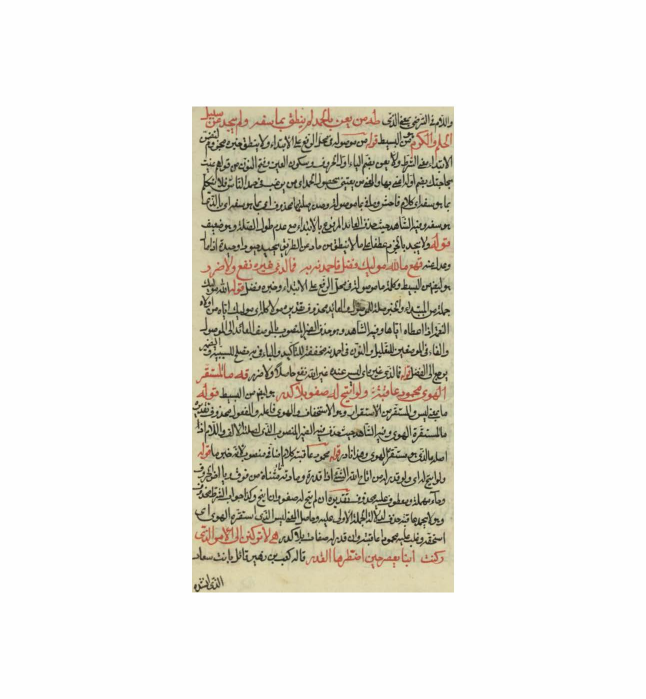 واللام في الترضي بمعنى الذي ولد من يعن بالحمد لم ينطق بما سفه ولم يحد عن سبيل
الحلم والكرم من البسيط قوله من موصولة في محل الرفع على الابتداء ولا ينطق خبره مجزوم
الابتداء معنى الشرط ولا يعن بضم الياء اخر الحروف وسكون العين وفتح النون من قولهم عنيت
بحاجتك بضم اوله اعنى بها والمعنى من يعتنى بحصول الحمد اي من يرغب في حمد الناس له فلا يتكلم
بما هو سفه اي كلام فاحش وصلة ما موصولة وصدر صلتها محذوف اي بما هو سفه اي بالذي
هو سفه وفيه الشاهد حيث حذف العائد المرفوع بالابتداء مع عدم طول الصلة وهو ضعيف
قوله ولا يحد بالجزم عطفا على ما لا ينطق من حاد عن الطريق يحيد حيودا وحيدة اذا مال
وعدل عنه قهع ما الله موليك فضل فاحمدنه به فما لدى غيره نفع ولا ضرر
هو ايضا من البسيط وكلمة ما موصولة في محل الرفع على الابتداء وخبره فضل قوله الله موليك
جملة من المبتدا والخبر صلة الموصول والعائد محذوف تقديره موليكه اي موليك اياه من اولاه
النعم اذا اعطاه اياها وفيه الشاهد وهو حذف الضمير المنصوب بالوصف العائد الى الموصول
والفاء في الموضعين للتعليل والنون في احمدنه مخففة للتاكيد والباء في به تصلح للسببية والضمير
يرجع الى الفضل قوله فما لدى غيره اي ليس عند غير الله نفع حاصلا ولا ضرر قله ما المستفز
الهوى محمود عاقبة ولو اتيح له صفو بلا كدر هو ايضا من البسيط قوله
ما بمعنى ليس والمستفز من الاستفزاز وهو الاستخفاف والهوى فاعله والمفعول محذوف تقديره
ما المستفزه الهوى وفيه الشاهد حيث حذف فيه الضمير المنصوب الذي لصلة الالف واللام اذ
اصله ما الذي هو مستفزه الهوى وهذا نادر قوله محمود عاقبة كلام اضافي منصوب لانه خبر ما قوله
ولو اتيح له اي ولو قدر له من اتاح الله الشئ اذا قدره ومادته مثناة من فوق وياء اخر الحروف
وحاء مهملة ومعطوف عليه محذوف تقديره ان لم يتح له صفو وان اتيح وكذا جواب الشرط محذوف
وهو لا يحمد عاقبته حذف لدلالة الجملة الاولى عليه وحاصل المعنى ليس الذي استفزه الهوى اي
استخفه وغلب عليه محمودا عاقبته وان قدر له صفاء بلا كدر هع لا تركنن الى الامر الذي
ركنت ابناء يعصر حين اضطرها القدر قاله كعب بن زهير قائل بانت سعاد
الذي انشده